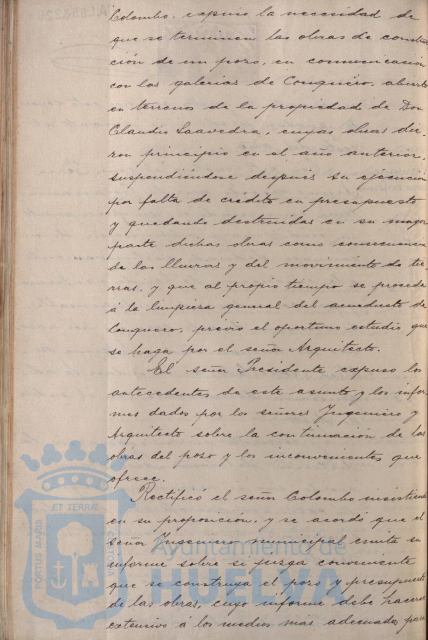 Colombo, expuso la necesidad de
que se terminen las obras de construc
ción de un pozo, en comunicación
con las galerias de Conquero, abierto
en terrenos de la propiedad de Don
Claudio Saavedra, cuyas obras die-
ron principio en el año anterior,
suspendiéndose despues su ejecución
por falta de crédito en presupuesto
y quedando destruidas en su mayor
parte dichas obras como consecuencia
de las lluvias y del movimiento de tie-
rras, y que al propio tiempo se proceda
á la limpieza general del acueducto de
Conquero, prévio el oportuno estudio que
se haga por el señor Arquitecto.
El señor Presidente expuso los
antecedentes de este asunto y los infor
mes dados por los señores Ingeniero y
Arquitecto sobre la continuación de las
obras del pozo y los inconvenientes que
ofrece.
Rectificó el señor Colombo insistiendo
en su proposición, y se acordó que el
señor Ingeniero municipal emita su
informe sobre si juzga conveniente
que se construya el pozo y presupuesto
de las obras, cuyo informe debe hacerse
extensivo á los medios mas adecuados para
PORTUS MARIS ET TERRAE
Ayuntamiento de
HUELVA